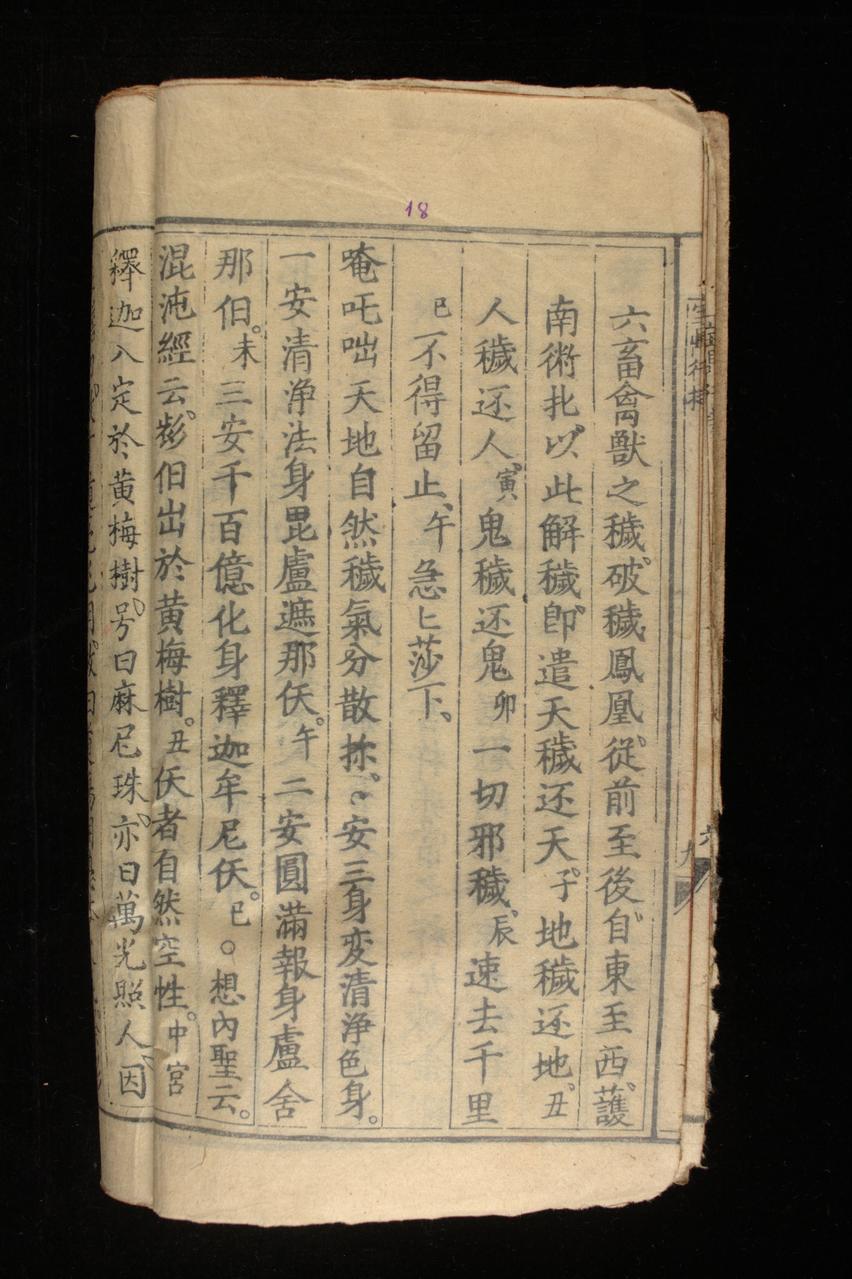 18
六畜禽獸之穢破穢鳳凰從前至後自東至西護
南術扎以此解穢即遣天穢还天子地穢还地丑
人穢还人寅鬼穢还鬼卯一切邪穢辰速去千里
巳不得留止午急匕莎下
唵吒咄天地自然穢氣分散捺安三身変清浄色身
一安清浄法身毘盧遮那仸午二安圓滿報身盧舍
那佀未三安千百億化身釋迦牟尼仸巳○想內聖云
混沌經云佀出於黄梅樹丑仸者自然空性中宮
釋迦入定於黄梅樹号曰麻尼珠亦曰萬光照人因